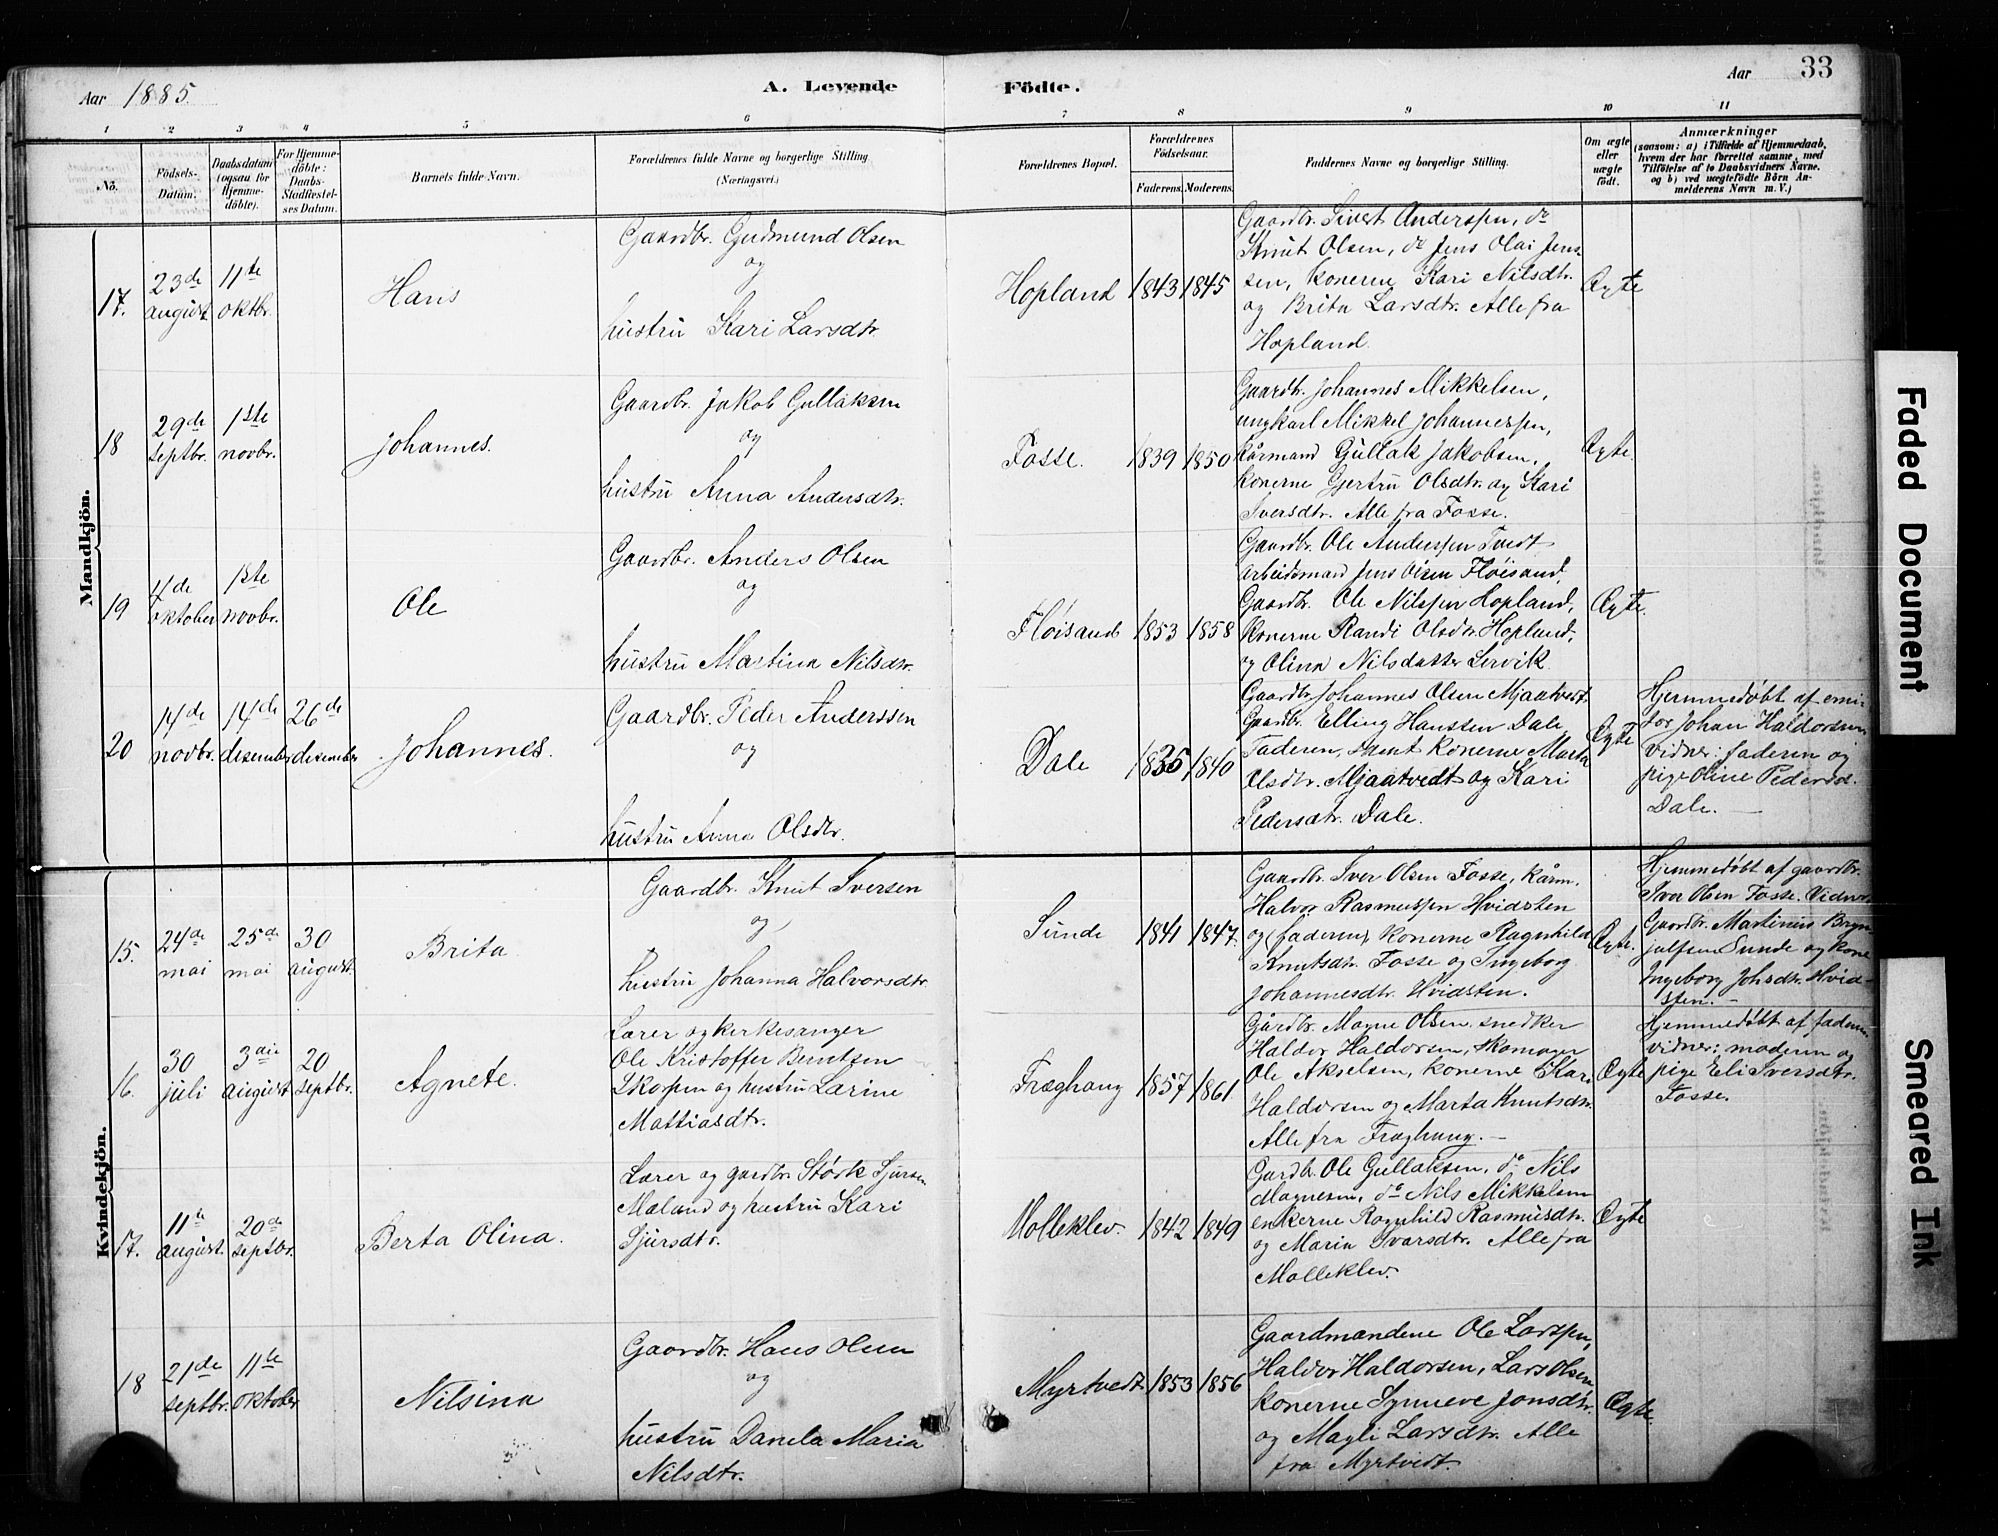 Aar 1885. A. Levende Födte. Aar 33
1 2 3 4 5 6 7 8 9 10 11
No.
Födsels-Datum.
Daabsdatum (ogsaa for Hjemmedöbte).
For Hjemmedöbte: Daabs-Stadfæstelses Datum.
Barnets fulde Navn.
Forældrenes fulde Navne og borgerlige Stilling (Næringsvei.)
Forældrenes Bopæl.
Forældrenes Födselsaar.
Faderens. Moderens.
Faddernes Navne og borgerlige Stilling.
Om ægte eller uægte født.
Anmærkninger
(saasom: a) i Tilfælde af Hjemmedaab, hvem der har forrettet samme, med Tilföielse af to Daabsvidners Navne. og b) ved uægtefödte Börn Anmelderens Navn m. V.)
Mandkjön.
17.
23de august
11te oktbr.
Hans
Gaardbr. Gudmund Olsen
og
hustru Kari Larsdtr.
Hopland 1843 1845
Gaardbr. Sivert Anderssen, do
Knut Olsen, do Jens Olai Jens-
sen, konerne Kari Nilsdtr.
og Brita Larsdtr. Alle fra
Hopland.
Ægte
18
29de septbr.
1ste novbr.
Johannes.
Gaardbr. Jakob Gullaksen
og
hustru Anna Andersdtr.
Fosse. 1839 1850
Gaardbr. Johannes Mikkelsen,
ungkarl Mikkel Johannessen,
kårmand Gullak Jakobsen,
konerne Gjertru Olsdtr. og Kari
Iversdtr. Alle fra Fosse.
Ægte.
19
4de oktober
1ste novbr.
Ole
Gaardbr. Anders Olsen
og
hustru Martina Nilsdtr.
Fløisand 1853 1858
Gaardbr. Ole Anderssen Tvedt
Arbeidsmand Jens Olsen Fløisand,
Gaardbr. Ole Nilssen Hopland,
Konerne Randi Olsdtr. Hopland,
og Olina Nilsdatter Lervik.
Ægte.
20
14de novbr.
14de desember
26de desember
Johannes.
Gaardbr. Peder Anderssen
og
hustru Anna Olsdtr.
Dale 1835 1840
Gaardbr. Johannes Olsen Mjaatvedt.
Gaardbr. Elling Hanssen Dale,
Faderen, samt konerne Marta
Olsdtr. Mjaatvedt og Kari
Pedersdtr. Dale.
Ægte
Hjemmedøbt af
Johan Haldorsen
vidner: faderen og
pige Oline Pedersd.
Dale.
Kvindekjön.
15.
24de mai
25de mai
30 august.
Brita.
Gaardbr. Knut Iversen
og
hustru Johanna Halvorsdtr.
Sunde 1841 1847.
Gaardbr. Iver Olsen Fosse, kårm.
Halvor Rasmussen Hvidsten
og (faderen) konerne Ragnhild
Knutsdtr. Fosse og Ingeborg
Johannesdtr. Hvidsten.
Ægte.
Hjemmedøbt af gaardbr.
Iver Olsen Fosse. Vidner
Gaardbr. Martinus Bryn-
julfsen Sunde og kone
Ingeborg Johsdtr. Hvid-
sten.
16.
30 juli
3die august
20 septbr.
Agnete.
Lærer og kirkesanger
Ole Kristoffer Berntsen
Skorpen og hustru Larine
Mattiasdtr.
Fræghaug 1857 1861.
Gårdbr. Magne Olsen, snedker
Haldor Haldorsen, skomager
Ole Akselsen, konerne Kari
Haldorsen og Marta Knutsdtr.
Alle fra Fræghaug.
Ægte
Hjemmedøbt af faderen
vidner: moderen og
pige Eli Iversdtr.
Fosse.
17.
11te august.
20de septbr.
Berta Olina.
Lærer og gardbr. Størk Sjursen
Maland og hustru Kari
Sjursdtr.
Molleklev. 1842 1849
Gardbr. Ole Gullaksen, do, Nils
Magnesen, do Nils Mikkelsen
enkerne Ragnhild Rasmusdtr.
og Maria Ivarsdtr. Alle fra
Molleklev.
Ægte
18
21de septbr.
11te oktober
Nilsina
Gaardbr. Hans Olsen
og
hustru Danela Maria
Nilsdtr.
Myrtvedt 1853 1856
Gaardmandene Ole Larssen,
Haldor Haldorsen, Lars Olsen
konerne Synneve Jonsdtr.
og Magli Larsdtr. Alle
fra Myrtvedt.
Ægte.
Faded Document
Smeared Ink